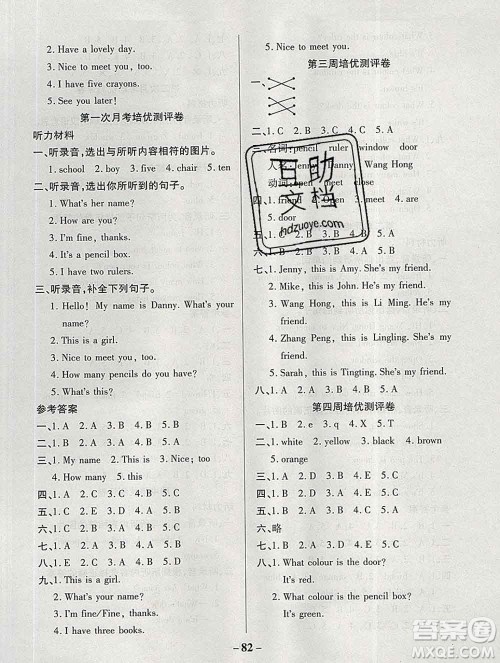 2. Have a lovely day.
3. Nice to meet you, too.
4. I have five crayons.
5. See you later!
第一次月考培优测评卷
听力材料
一、听录音,选出与所听内容相符的图片。
1. school 2. door 3. five 4. chair 5. ten
二、听录音,选出你所听到的句子。
1. What's her name?
2. How are you?
3. I'm fine, thanks.
4. It's a pencil box.
5. I have two rulers.
三、听录音,补全下列句子。
1. Hello! My name is Danny. What's your
name?
2. This is a girl.
3. Nice to meet you, too.
4. How many pencils do you have?
5. What's this?
参考答案
一、1. A 2. A 3. B 4. A 5. B
二、1. B 2. A 3. A 4. B 5. A
三、1. My name 2. This is 3. Nice; too
4. How many 5. this
四、1. A 2. C 3. C 4. B 5. B
五、1. B 2. A 3. C 4. B 5. C
六、1. C 2. B 3. A 4. B 5. C
七、1. D 2. C 3. E 4. B 5. A
八、1. B 2. A 3. D 4. E 5. C
九、1. This is a girl.
2. What's your name?
3. I'm fine/Fine, thanks.
4. I have three books.
5. Nice to meet you.
第三周培优测评卷
一、
二、1. C 2. A 3. B 4.
三、名词:pencil ruler window door
人名:Jenny Danny Wang Hong
动词:open meet close
四、1.
五、1. are 2.
door
六、1. C 2.
七、1. Jenny, this is Amy. She's my friend.
2. Mike, this is John. He's my friend.
3. Wang Hong, this is Li Ming. He's my
friend.
4. Zhang Peng, this is Lingling. She's my
friend.
5. Sarah, this is Tingting. She's my friend.
八、1. C 2. A 3. A 4. B 5. A
第四周培优测评卷
一、1. B 2. A 3. A 4. B 5. C
二、1. white 2. yellow 3. black 4. brown
5. orange
三、1. D 2. A 3. B 4. E 5. C
四、1. A 2. B 3. A 4. C 5. B
五、1. B 2. D 3. A 4. E 5. C
六、略
七、1. B 2. A 3. B 4. C 5. A
八、1. What colour is the door?
It's red.
2. What colour is the pencil box?
It's green.
互助
文档
hdzuoye.com
— 82 —
作业帮答案
MXQE.COM